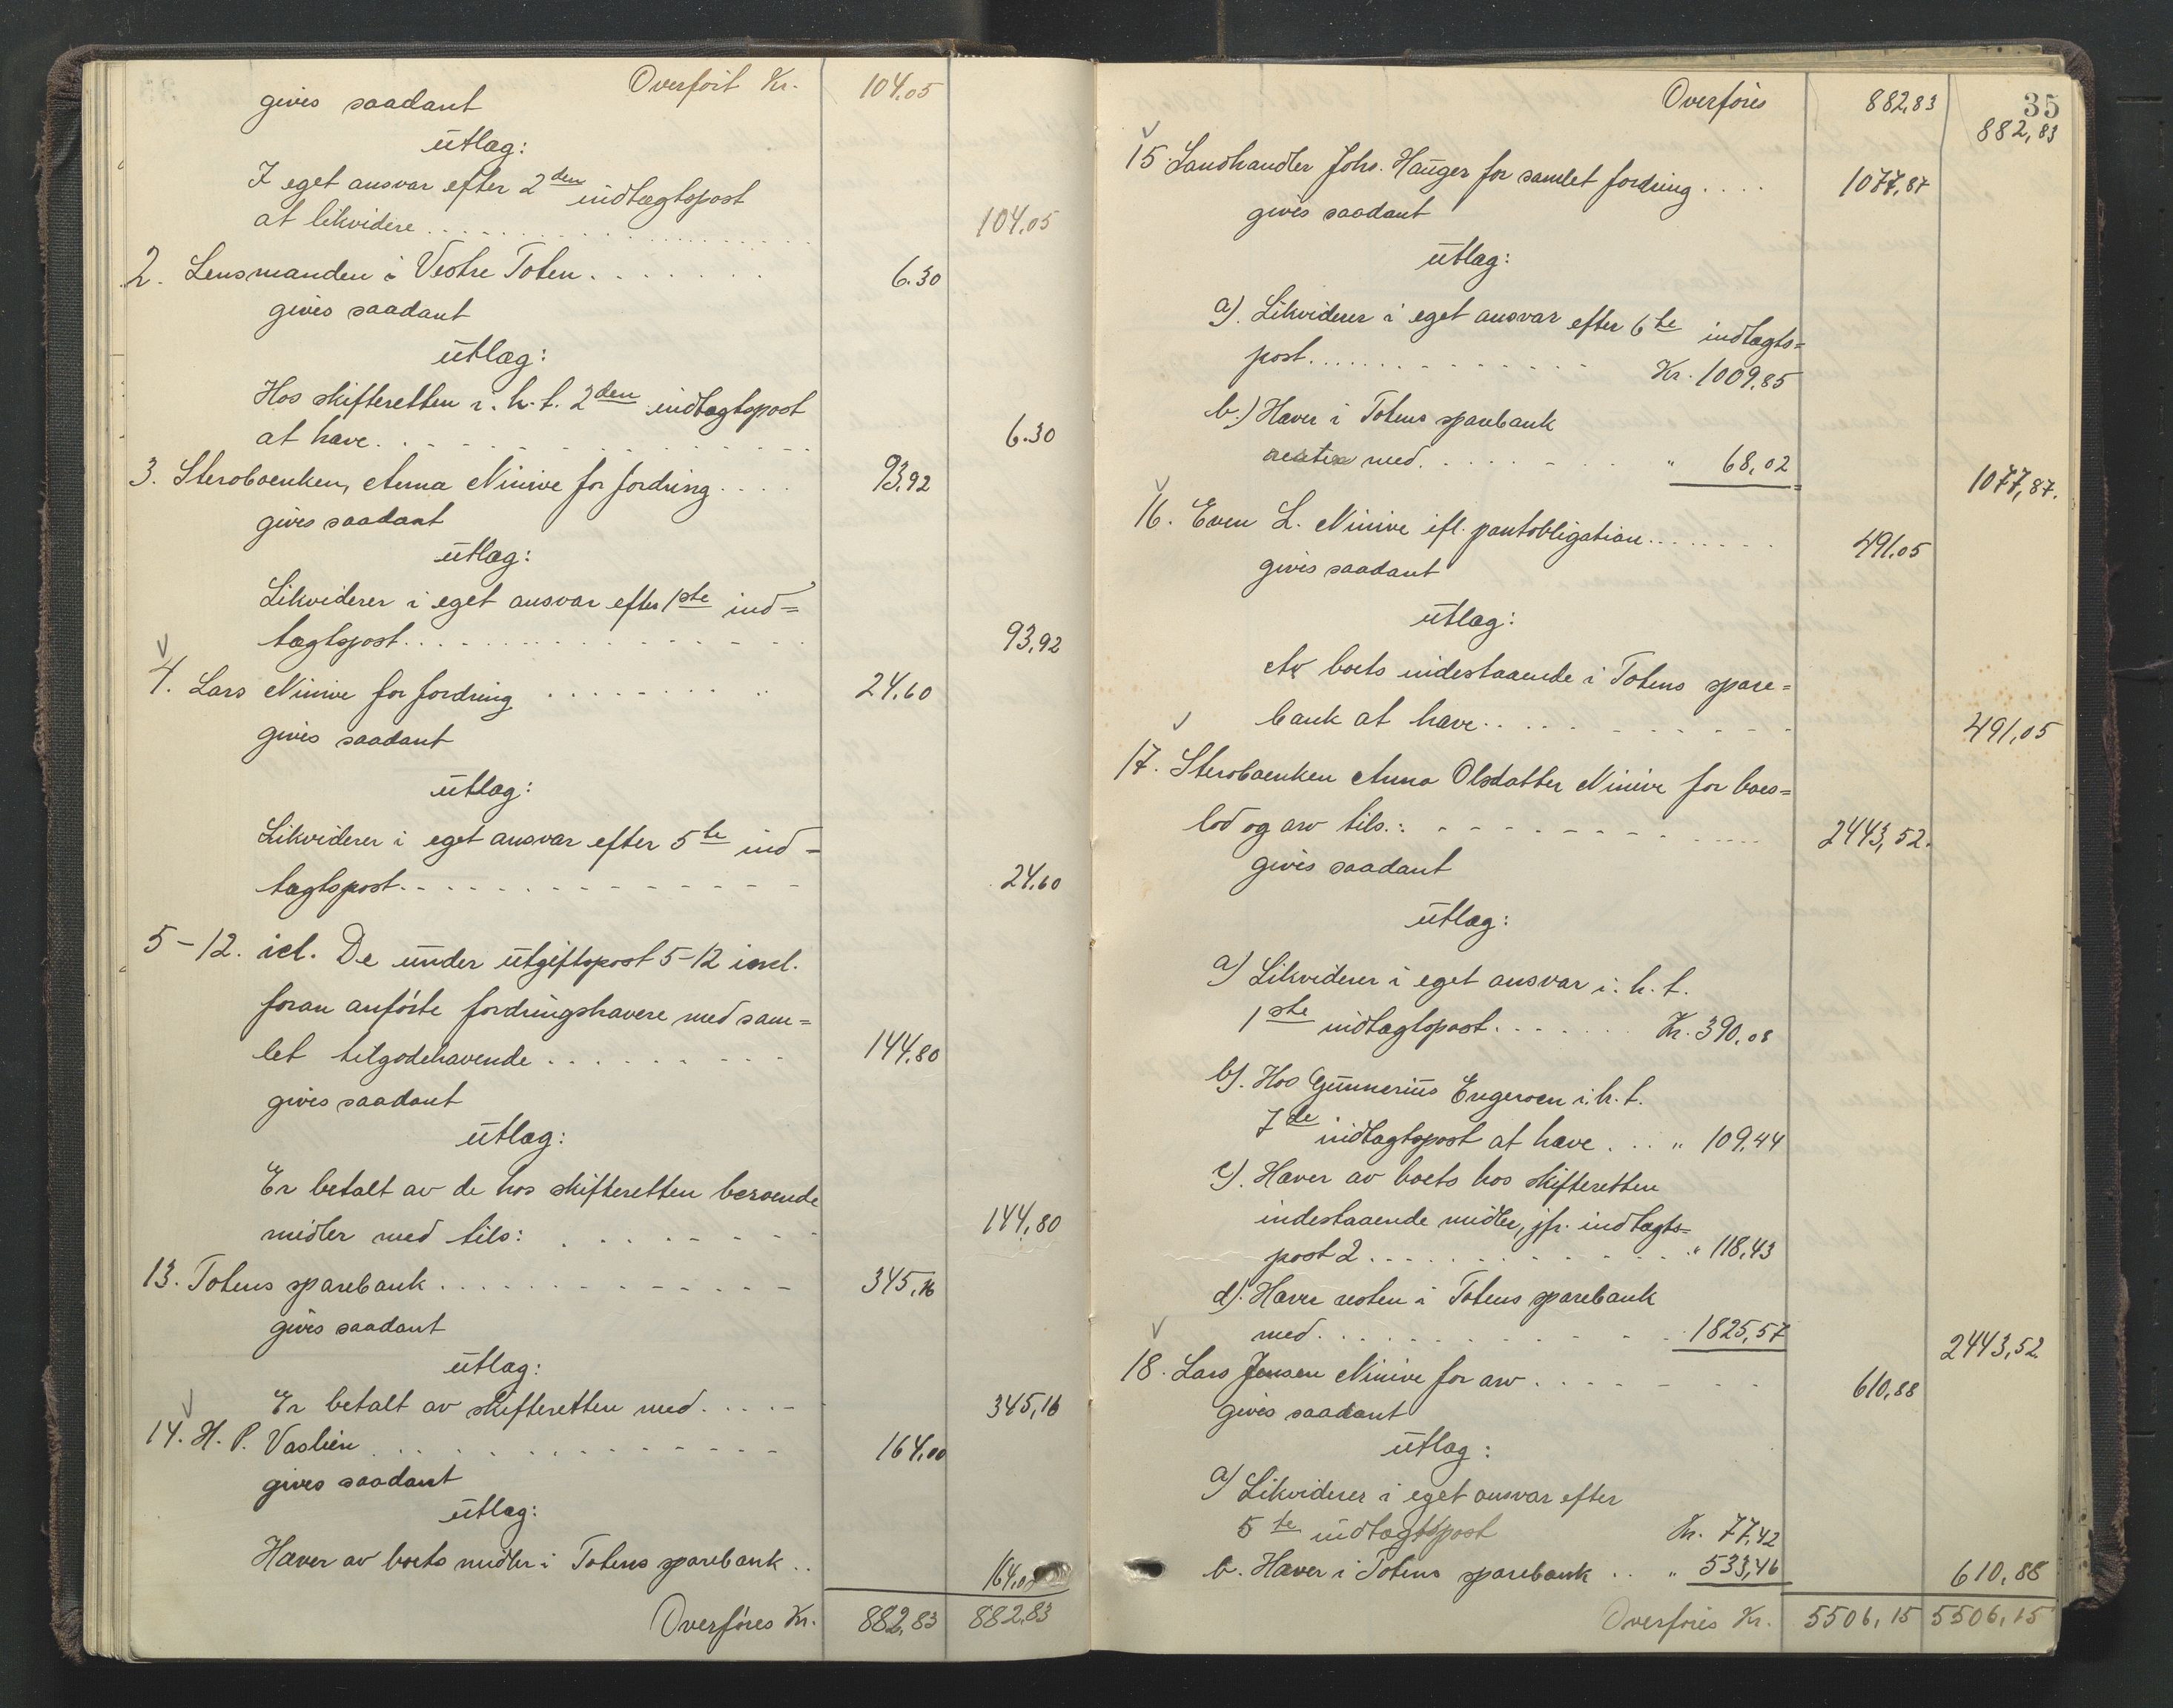 Overført Kr. 104,05
gives saadant
utlæg:
I eget ansvar efter 2den indtægtspost
at likvidere . . . . . . . 104,05
2. Lensmanden i Vestre Toten . . . . . . . 6.30
gives saadant
utlæg:
Hos skifteretten i. h. t. 2den indtægtspost
at hæve . . . . . . . 6.30
3. Sterboenken, Anna Ninive for fordring . . . . 93,92
gives saadant
utlæg:
Likviderer i eget ansvar efter 1ste ind=
tægtspost . . . . . . . 93,92
4. Lars Ninive for fordring . . . . . . . 24,60
gives saadant
utlæg:
Likviderer i eget ansvar efter 5te ind=
tægtspost . . . . . . . 24,60
5-12. icl. De under utgiftspost 5-12 incl.
foran anførte fordringshavere med sam=
let tilgodehavende . . . . . . . 144,80
gives saadant
utlæg:
Er betalt av de hos skifteretten beroende
midler med tils: . . . . . . . 144,80
13. Totens sparebank . . . . . . . 345,16
gives saadant
utlæg:
Er betalt av skifteretten med . . . . 345,16
14. H. P. Vaslien . . . . . . . 164,00
gives saadant
utlæg:
Hæver av boets midler i Totens sparebank . . 164,00
Overføres Kr. 882,83 882,83
35
Overføres 882,83 882,83
15. Landhandler Johs. Hauger for samlet fordring . . . . 1077,87
gives saadant
utlæg:
a). Likviderer i eget ansvar efter 6te indtægts=
post . . . . . . . Kr. 1009,85
b.) Hæver i Totens sparebank
med . . . . . . . " 68,02 1077,87.
16. Even L. Ninive ifl. pantobligation . . . . . . . 491,05
gives saadant
utlæg:
Av boets indestaaende i Totens spare=
bank at hæve . . . . . . . 491,05
17. Sterboenken Anna Olsdatter Ninive for boes=
lod og arv tils.: . . . . . . . 2443,52.
gives saadant
utlæg:
a) Likviderer i eget ansvar i. h. t.
1ste indtægtspost . . . . . . . Kr. 390,08
b). Hos Gunnerius Engeroen i. h. t.
7de indtægtspost at hæve . . . " 109,44
c). Hæver av boets hos skifteretten
indestaaende midler, jfr. indtægts=
post 2 . . . . . . . " 118,43
d). Hæver resten i Totens sparebank
med . . . . . . . 1825,57 2443,52.
18. Lars Jensen Ninive for arv . . . . . . . 610,88
gives saadant
utlæg:
a) Likviderer i eget ansvar efter
5te indtægtspost Kr. 77,42
b. Hæver i Totens sparebank . . " 533,46 610,88
Overføres Kr. 5506,15 5506,15